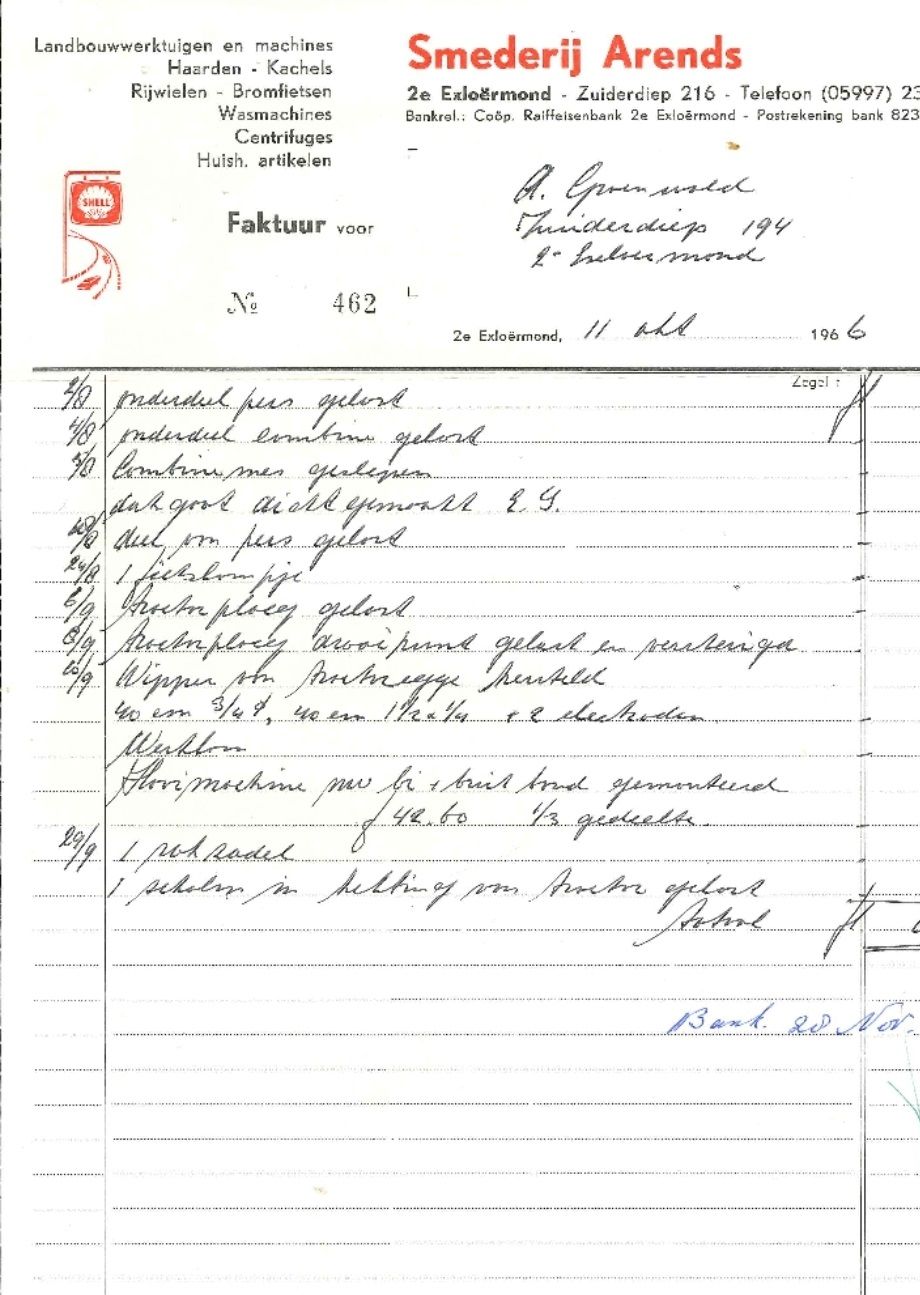 Landbouwwerktuigen en machines
Haarden - Kachels
Rijwielen - Bromfietsen
Wasmachines
Centrifuges
Huish. artikelen
SHELL
Smederij Arends
2e Exloërmond - Zuiderdiep 216 - Telefoon (05997) 23
Bankrel.: Coöp. Raiffeisenbank 2e Exloërmond - Postrekening bank 823
Faktuur voor
A. Groenwold
Zuiderdiep 194
2e Exloermond
№ 462
2e Exloërmond, 11 okt 1966
Zegel :
2/8 onderdeel pers gelast fl
4/8 onderdeel combine gelast
5/8 Combine mes geslepen
dakgoot dicht gemaakt E.G.
deel van pers gelast
24/8 1 fietslampje
6/9 tractor ploeg gelast
8/9 tractorploeg draaipunt gelast en verstevigd
10/9 Wipper van tractoregge hersteld
40 cm 3/4 , 40 cm 1 1/2 x 1/4 + 2 electroden
Werkloon
machine nw bi + buit band gemonteerd
f 42.60 1/3 gedeelte
29/9 1 zadel
1 schalm in ketting van tractor gelast
Totaal fl
Bank. 28 Nov.